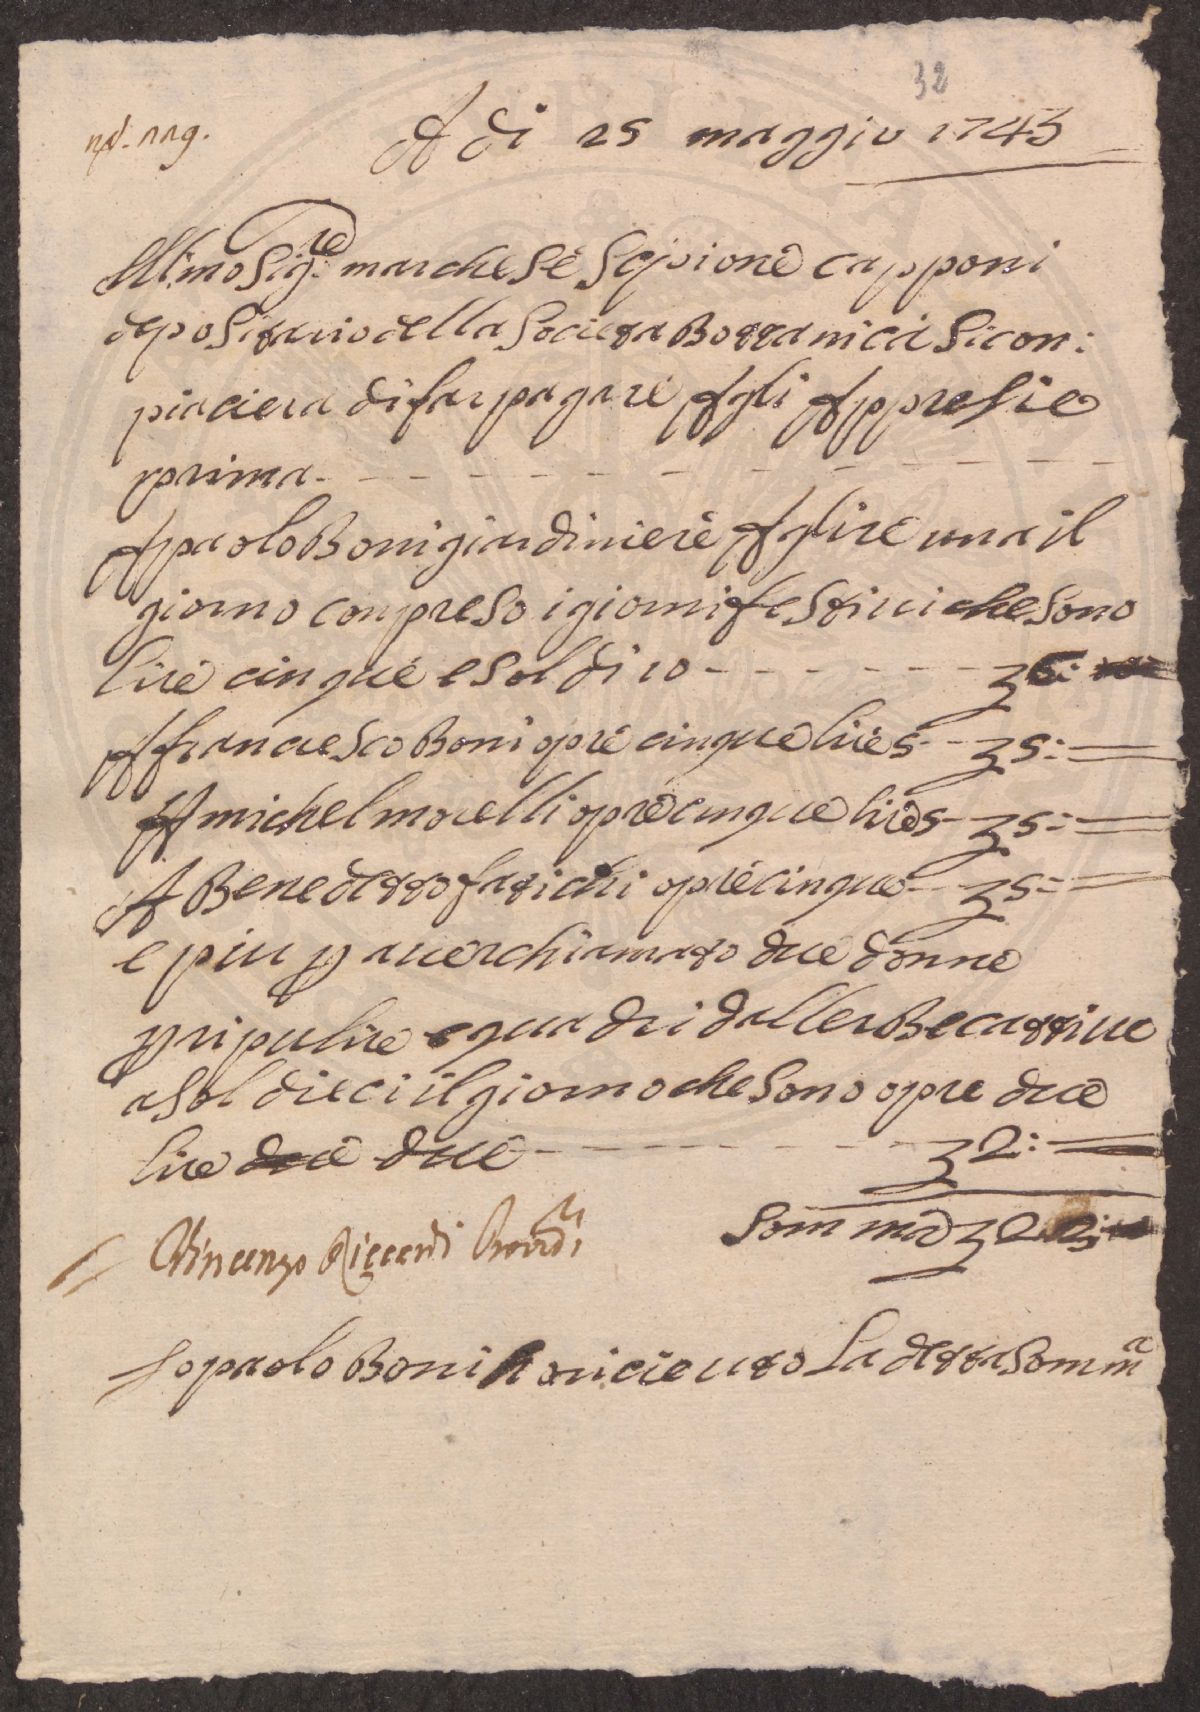 32
A di 25 maggio 1743
Ill:mo Sig:re marchese Scipione capponi
depositario della Societa Bottanica Si con:
piaciera di far pagare Agli Appresie
prima
A paolo Boni giardiniere A lire una il
giorno conpreso i giorni festiui che sono
lire cinque e soldi 10
A franciesco Boni opre cinque lire 5 5:
A michel morelli opre cinque lire 5 5:
A Benedetto fatichi opre cinque 5:
e piu p auer chiamato due donne
p ripulire e quadri dalle Becattiue
a sol dieci il giorno che sono opre due
lire due due 2:
Vincenzo Riccardi Provdi
Somma 22:
Io paolo Boni o riceuto La detta Somma